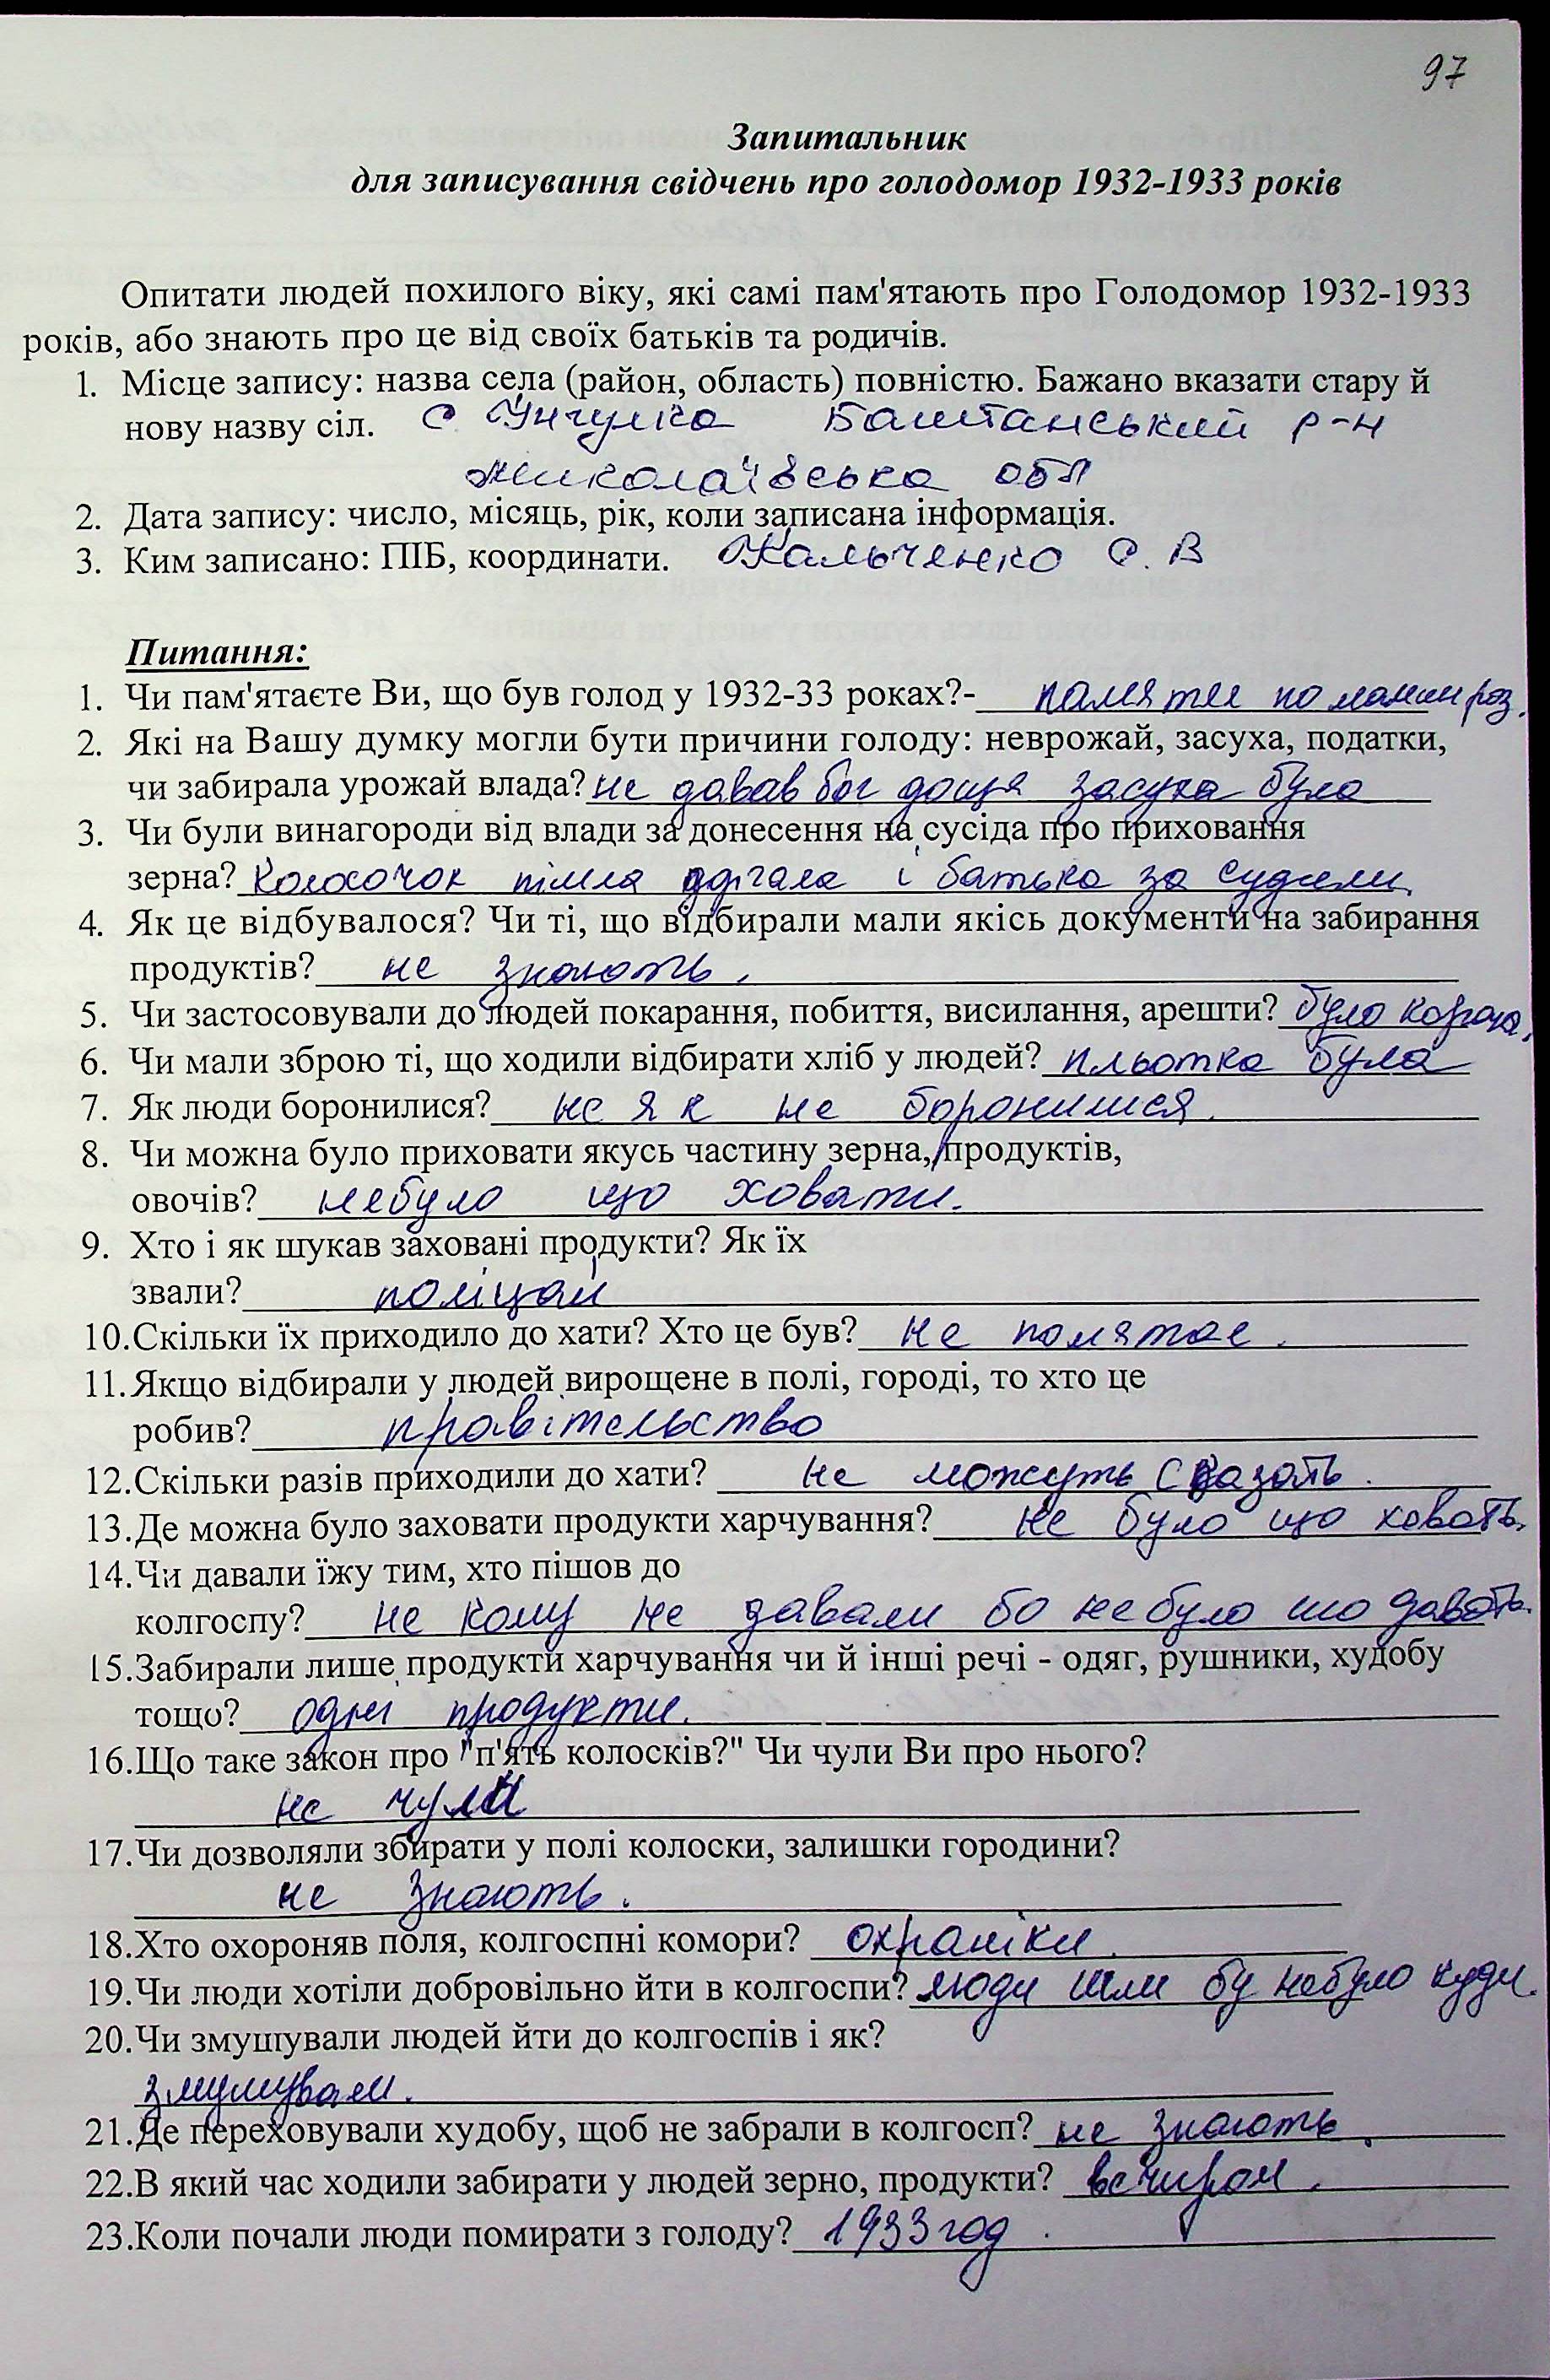 97
Запитальник
для записування свідчень про голодомор 1932-1933 років
Опитати людей похилого віку, які самі пам'ятають про Голодомор 1932-1933
років, або знають про це від своїх батьків та родичів.
1. Місце запису: назва села (район, область) повністю. Бажано вказати стару й
нову назву сіл. с. Інгулка Баштанський р-н
Миколаївська обл
2. Дата запису: число, місяць, рік, коли записана інформація.
3. Ким записано: ПІБ, координати. Кальченко О. В
Питання:
1. Чи пам'ятаєте Ви, що був голод у 1932-33 роках?- памяти по мамин роз.
2. Які на Вашу думку могли бути причини голоду: неврожай, засуха, податки,
чи забирала урожай влада? не давав бог дощя засуха була
3. Чи були винагороди від влади за донесення на сусіда про приховання
зерна? Колосочок і батька за судили
4. Як це відбувалося? Чи ті, що відбирали мали якісь документи на забирання
продуктів? не знають.
5. Чи застосовували до людей покарання, побиття, висилання, арешти? було
6. Чи мали зброю ті, що ходили відбирати хліб у людей? пльотка була
7. Як люди боронилися? не як не боронилися.
8. Чи можна було приховати якусь частину зерна, продуктів,
овочів? небуло що ховати.
9. Хто і як шукав заховані продукти? Як їх
звали? поліцай
10.Скільки їх приходило до хати? Хто це був? не помятає.
11.Якщо відбирали у людей вирощене в полі, городі, то хто це
робив? правітельство
12.Скільки разів приходили до хати? не можуть сказать.
13.Де можна було заховати продукти харчування? не було що ховать.
14.Чи давали їжу тим, хто пішов до
колгоспу? не кому не давали бо небуло шо давать.
15.Забирали лише продукти харчування чи й інші речі - одяг, рушники, худобу
тощо? одні продукти.
16.Що таке закон про "п'ять колосків?" Чи чули Ви про нього?
не чули
17.Чи дозволяли збирати у полі колоски, залишки городини?
не знають.
18.Хто охороняв поля, колгоспні комори? охраніки.
19.Чи люди хотіли добровільно йти в колгоспи? люди шли бу небуло куди.
20.Чи змушували людей йти до колгоспів і як?
змушували.
21.Де переховували худобу, щоб не забрали в колгосп? не знають.
22.В який час ходили забирати у людей зерно, продукти? вечиром.
23.Коли почали люди помирати з голоду? 1933 год.